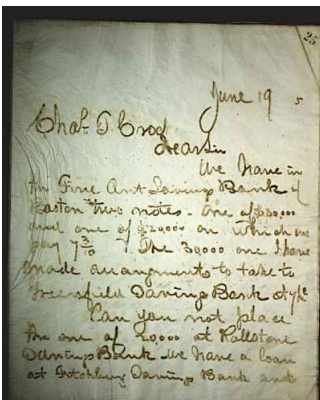 25
June 19 5
Chas. T. Croc
Dear Sir
We have in
the Five Cent Savings Bank of
Boston two notes - One of $30,000
and one of $20,000 on which we
pay 7 3/10 The 30,000 one I have
made arrangements to take to
Greenfield Savings Bank at 7
Can you not place
the one of 20,000 at Rollstone
Savings Bank we have a loan
at Fitchburg Savings Bank and